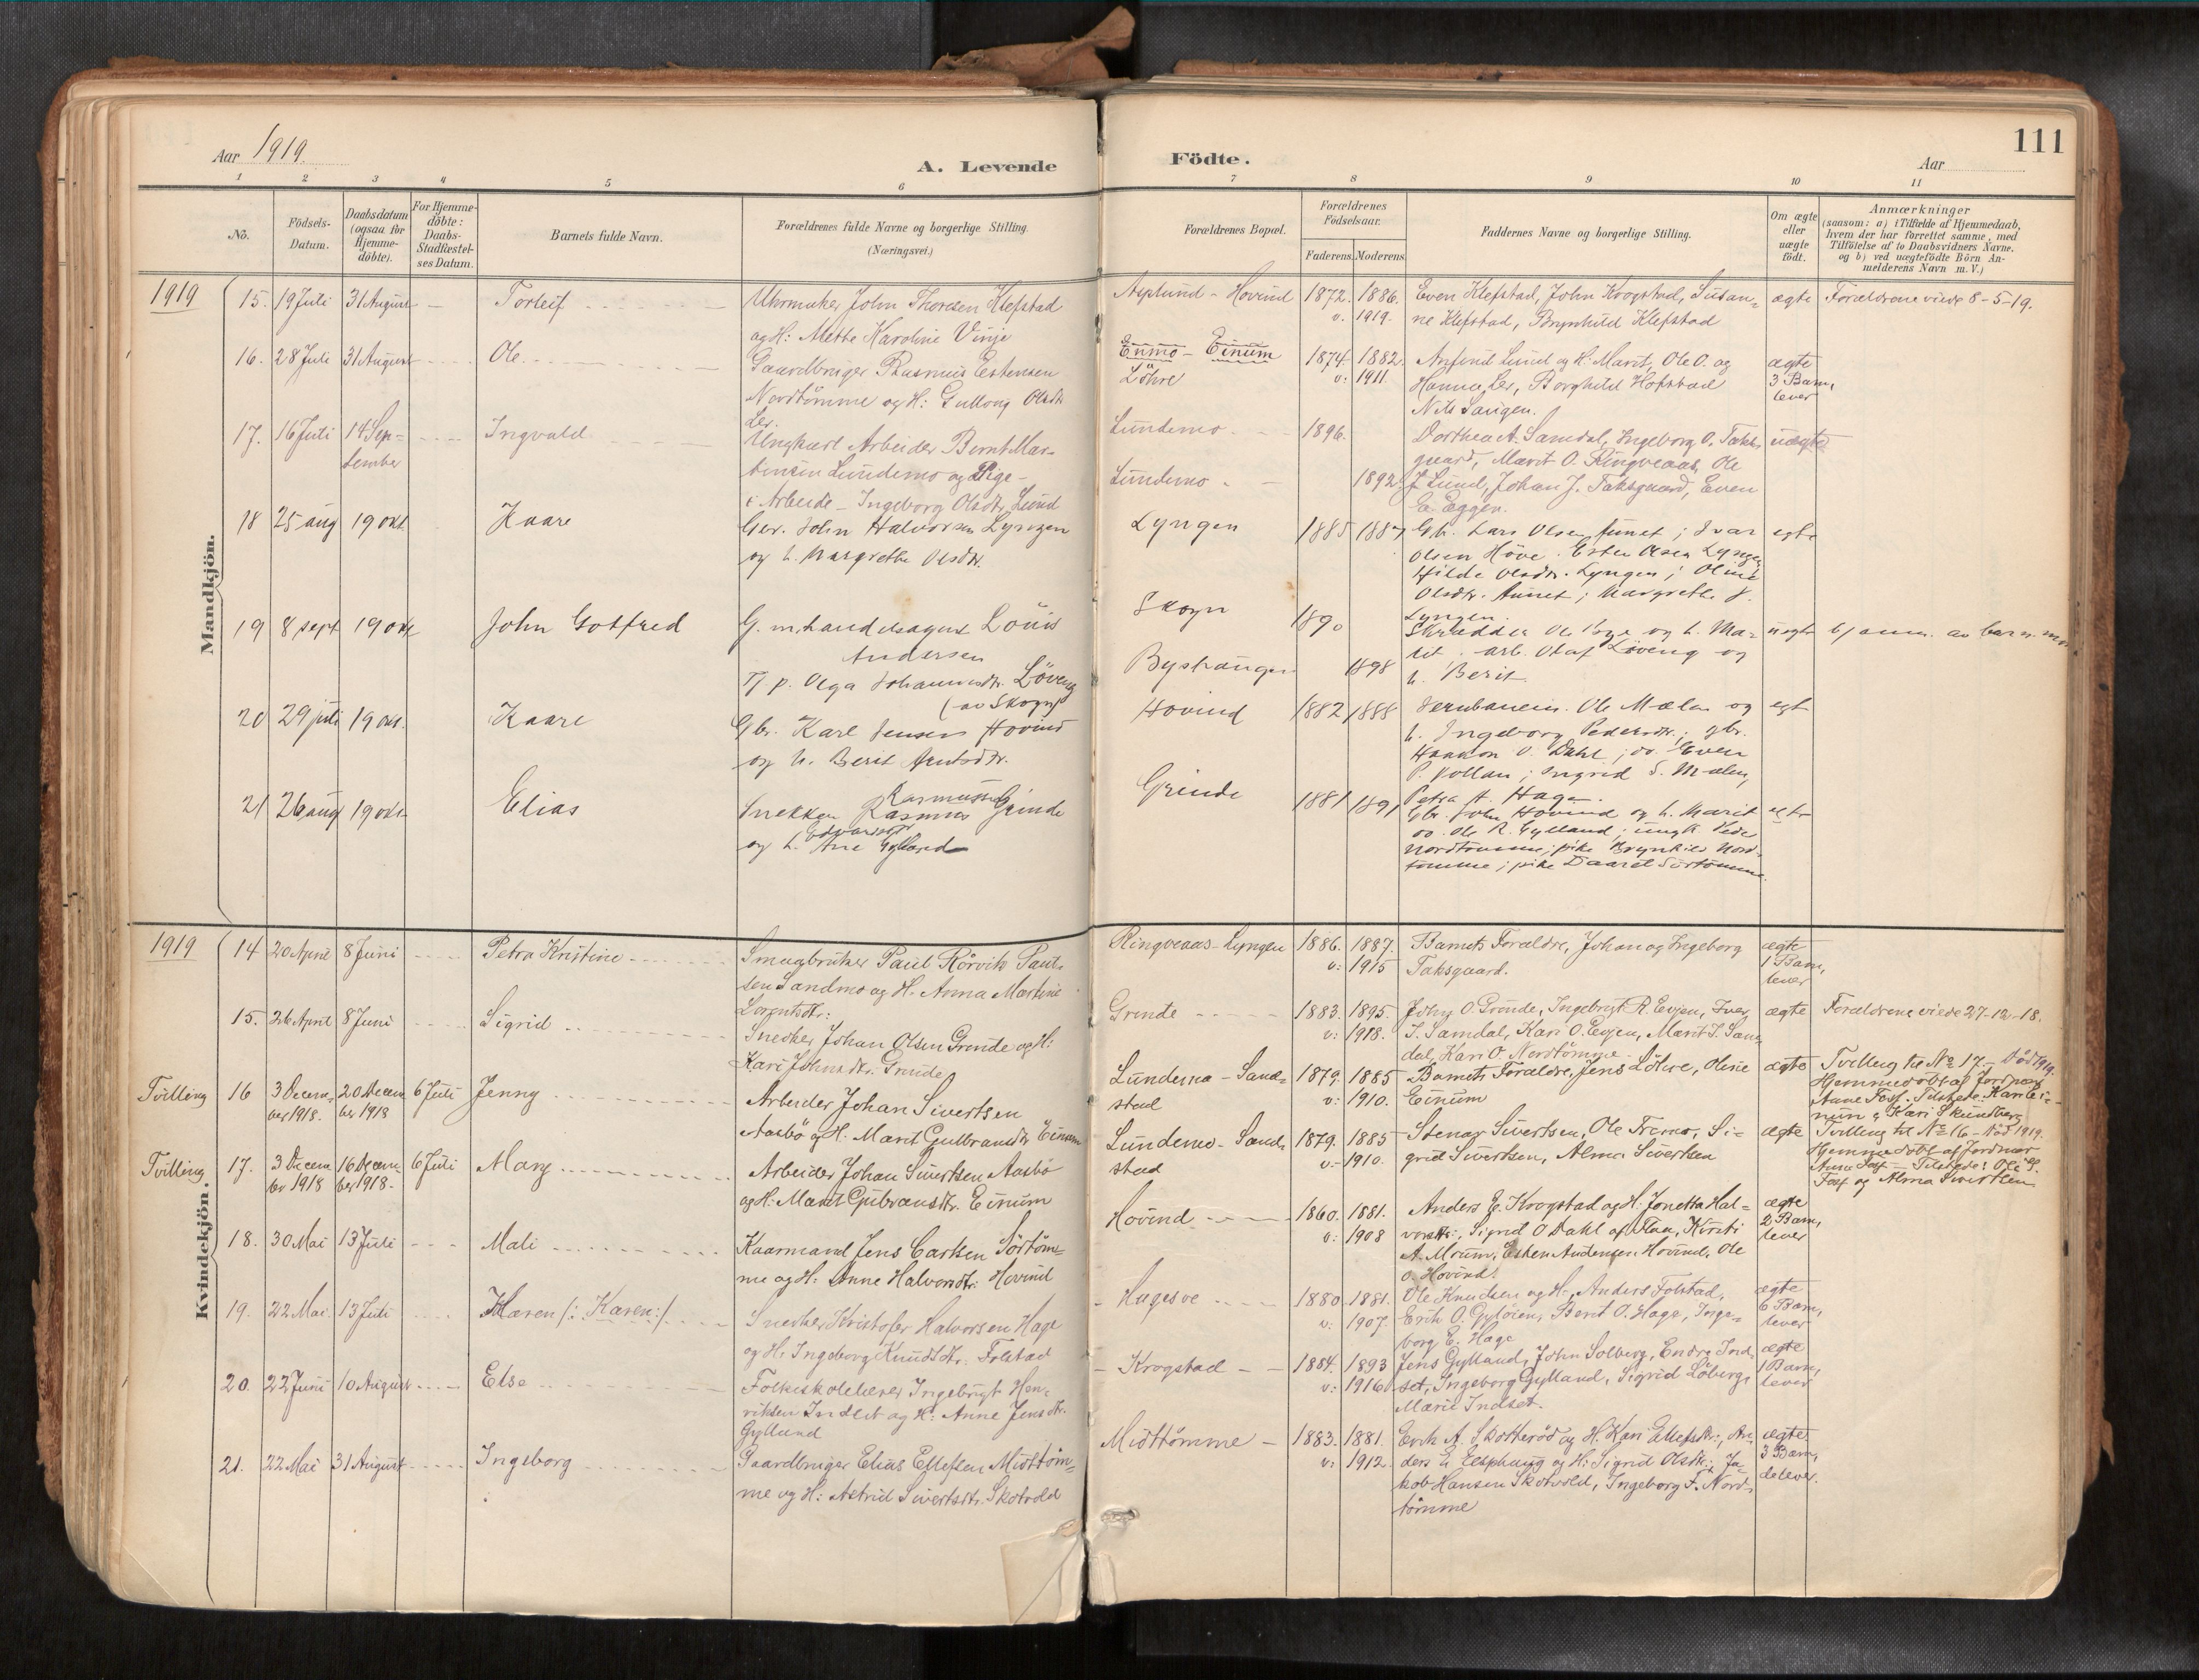 Aar 1919.
A. Levende
Födte.
Aar
111
1
2
3
4
5
6
7
8
9
10
11
No.
Födsels-
Datum.
Daabsdatum
(ogsaa for
Hjemme-
döbte).
For Hjemme-
döbte:
Daabs-
Stadfæstel-
ses Datum.
Barnets fulde Navn.
Forældrenes fulde Navne og borgerlige Stilling.
(Næringsvei.)
Forældrenes Bopæl.
Forældrenes
Födselsaar.
Faderens. Moderens.
Faddernes Navne og borgerlige Stilling.
Om ægte
eller
uægte
födt.
Anmærkninger
(saasom: a) i Tilfælde af Hjemmedaab,
hvem der har forrettet samme, med
Tilföielse af to Daabsvidners Navne.
og b) ved uægtefödte Börn An-
melderens Navn m. V.)
Mandkjön.
1919
15. 19 Juli 31 August Torleif
Uhrmaker John Thoresen Klefstad
og H: Mette Karoline Vinje
Asplund - Hovind 1872. 1886.
v. 1919.
Even Klefstad, John Krogstad, Susan-
ne Klefstad, Brynhild Klefstad
ægte
Forældrene viede 8-5-19.
16. 28 Juli 31 August Ole
Gaardbruger Rasmus Estensen
Nordtömme og H: Gullaug Olsdtr.
Ler.
Enmo - Einum
Löhre
1874. 1882.
v: 1911.
Arnfind Lund og H: Marit, Ole O. og
Hanna Ler, Borghild Hofstad
Nils Saugen.
ægte
3 Barn,
lever
17. 16 Juli 14 Sep-
tember
Ingvald
Ungkarl Arbeider Bernt Mar-
tinsen Lundemo og Pige
i Arbeide - Ingeborg Olsdtr. Lund
Lundemo 1896.
Lundemo 1892.
Dorthea A. Samdal, Ingeborg O. Taks-
gaard, Marit O. Ringveaas, Ole
J. Lund, Johan J. Taksgaard, Even
E. Eggen.
uægte
18 25 aug 19 okt. Kaare
Gbr. John Halvorsen Lyngen
og h. Margrethe Olsdtr.
Lyngen 1885 1887
Gbr. Lars Olsen Aunet; Ivar
Olsen Höve. Esten Olsen Lyngen
Hilde Olsdtr. Lyngen; Oline
Olsdtr. Aunet; Margrethe J.
Lyngen.
egte
19 8 sept 19 okt John Gotfred
G. m. handelsagent Louis
Andersen
Tj. p. Olga Johannesdtr. Löveng
(av Skogn)
Skogn 1890
Bystraugen 1898
Skrædder Ole Bye og h. Ma-
rit. arb. Olaf Löveng og
h. Berit.
uegte
b) anm. av barn. mor
20 29 juli 19 okt. Kaare
Gbr. Karl Jensen Hovind
og h. Berit Arntsdtr.
Hovind 1882 1888
Jernbanem. Ole Mælen og
h. Ingeborg Pedersdtr.; gbr.
Haakon O. Dahl; do. Even
P. Vollan; Ingrid S. Mælen,
Petra A. Hage.
egte
21 26 aug 19 okt. Elias
Snekker Rasmus Rasmussen Grinde
og h. Ane Edvardsdtr. Gylland
Grinde 1881 1891
Gbr. John Hovind og h. Marit
do. Ole R. Gylland; ungk. Peder
Nordtömme; pike Brynhild Nord-
tömme; pike Daaret Sörtömme.
egte
Kvindekjön.
1919
14 20 April 8 Juni Petra Kristine
Smaabruker Paul Rörvik Paul-
sen Sandmo og H. Anna Martine
Lorentsdtr:
Ringveaas - Lyngen 1886. 1887.
v: 1915
Barnets Forældre, Johan og Ingeborg
Taksgaard.
ægte
1 Barn,
lever
15. 26 April 8 Juni Sigrid
Snedker Johan Olsen Grinde og H:
Kari Johnsdtr. Grinde
Grinde 1883. 1895.
v: 1918.
John O. Grinde, Ingebrigt R. Evjen, Ivar
I. Samdal, Kari O. Evjen, Marit I. Sam-
dal, Kari O. Nordtömme.
ægte
Forældrene viede 27-12-18.
Tvilling 16 3 Decem-
ber 1918. 20 Decem
ber 1918 6 Juli Jenny
Arbeider Johan Sivertsen
Aasbö og H. Marit Gulbransdtr. Einum
Lundemo - Sand-
stad
1879. 1885
v: 1910.
Barnets Forældre, Jens Löhre, Oline
Einum
ægte
Tvilling til No 17. - Död 1919.
Hjemmedöbt af Jordmor
Anne Foss. Tilstede: Kari Ei-
num og Kari Skundberg
Tvilling 17. 3 Decem
ber 1918 16 Decem
ber 1918. 6 Juli Mary
Arbeider Johan Sivertsen Aasbö
og H. Marit Gulbransdtr. Einum
Lundemo - Sand-
stad
1879. 1885
v. 1910.
Stenar Sivertsen, Ole Fremo, Si-
grid Sivertsen, Alma Sivertsen
ægte
Tvilling til No 16 - Död 1919.
Hjemmedöbt af Jordmor
Anne Foss - Tilstede: Ole S.
Foss og Alma Sivertsen
18. 30 Mai 13 Juli Mali
Kaarmand Jens Carlsen Sörtöm-
me og H: Anne Halvorsdtr: Hovind
Hovind 1860. 1881.
v: 1908
Anders E. Krogstad og H. Jonetta Hal-
vorsdtr:, Sigrid O Dahl af Flaa, Kirsti
A. Moum, Esten Andersen Hovind, Ole
O. Hovind.
ægte
2 Barn,
lever
19. 22 Mai 13 Juli Karen /: Karen :/
Snedker Kristofer Halvorsen Hage
og H. Ingeborg Knudsdtr. Folstad
Hagesve 1880 1881.
v: 1907
Ole Knudsen og H., Anders Folstad,
Erik O. Gylöien, Berit O. Hage, Inge-
borg E. Hage
ægte
6 Barn,
lever
20. 22 Juni 10 August Else
Folkeskolelærer Ingebrigt Hen-
riksen Indset og H: Anne Jensdtr.
Gylland
Krogstad 1884. 1893
v: 1916
Jens Gylland, John Solberg, Endre Ind-
set, Ingeborg Gylland, Sigrid Löberg,
Marie Indset.
ægte
1 Barn,
lever
21. 22 Mai 31 August Ingeborg
Gaardbruger Elias Ellefsen Midttöm-
me og H: Astrid Sivertsdtr. Skotvold
Midttömme 1883. 1881.
v: 1912.
Erik A. Skotteröd og H. Kari Ellefsdtr:, An-
ders E. Eelsphaug og H: Sigrid Olsdtr:, Ja-
kob Hansen Skotvold, Ingeborg F. Nord-
tömme
ægte
3 Barn,
de lever.